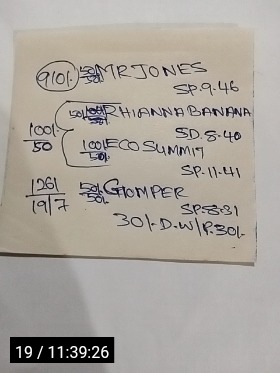 910/- 50/- 50/- MR JONES
SP.9.46
RHIANNA BANANA
SD.8.40
100/- 50
100/- 50/- ECO SUMMIT
SP.11.41
126/ 19/7
50/- 50/- GOMPER
SP.8.31
30/- D.W/P.30/-
19 / 11:39:26